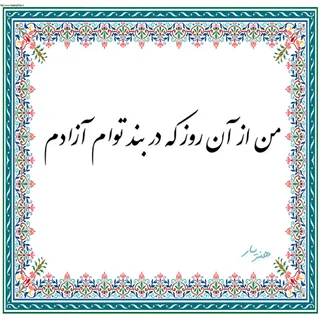 من از آن روز که در بند توام آزادم
هنریار